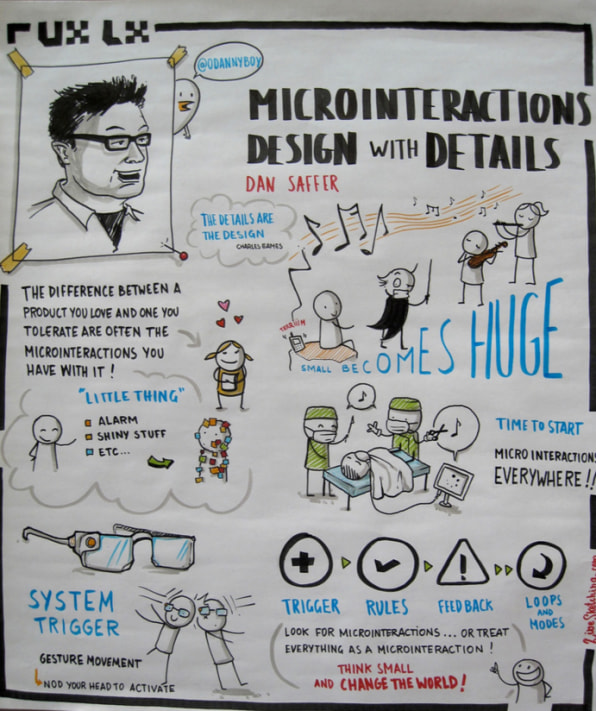 UX LX
@ODANNYBOY
MICROINTERACTIONS
DESIGN WITH DETAILS
DAN SAFFER
THE DETAILS ARE
THE DESIGN
CHARLES EAMES
THE DIFFERENCE BETWEEN A
PRODUCT YOU LOVE AND ONE YOU
TOLERATE ARE OFTEN THE
MICROINTERACTIONS YOU
HAVE WITH IT!
SMALL BECOMES HUGE
"LITTLE THING"
ALARM
SHINY STUFF
ETC...
TIME TO START
MICRO INTERACTIONS
EVERYWHERE!!
SYSTEM
TRIGGER
GESTURE MOVEMENT
NOD YOUR HEAD TO ACTIVATE
TRIGGER
RULES
FEEDBACK
LOOPS
AND
MODES
LOOK FOR MICROINTERACTIONS... OR TREAT
EVERYTHING AS A MICROINTERACTION!
THINK SMALL
AND CHANGE THE WORLD!